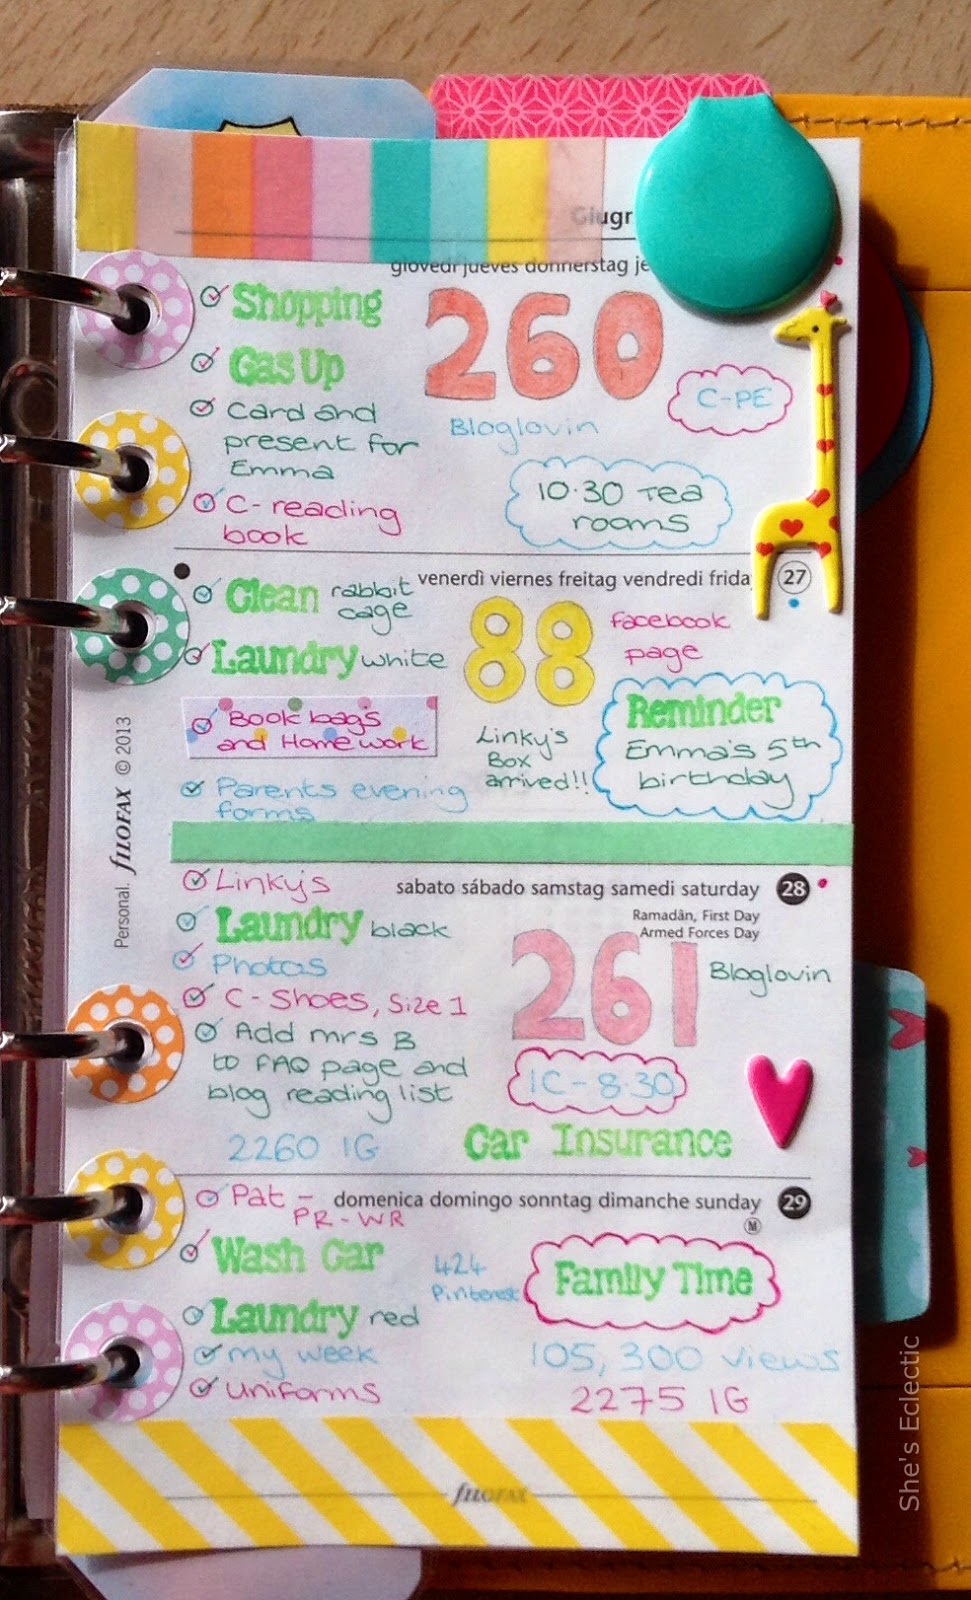 Giugr
giovedì jueves donnerstag je
Shopping
260
Gas Up
C-PE
Card and
present for
Emma
Bloglovin
C- reading
book
10.30 Tea
rooms
venerdì viernes freitag vendredi frida
27
Clean rabbit
cage
88
Facebook
page
Laundry white
Book bag's
and Homework
Linky's
Box
arrived!!
Reminder
Emma's 5th
birthday
Parents evening
forms
Personal. FILOFAX © 2013
Linky's
sabato sábado samstag samedi saturday 28
Ramadân, First Day
Armed Forces Day
Laundry black
261
Bloglovin
Photos
C- Shoes, Size 1
Add mrs B
to FAQ page and
blog reading list
1C - 8.30
2260 IG
Car Insurance
Pat -
PR-WR
domenica domingo sonntag dimanche sunday 29
M
Wash Car
424
Pinterest
Family Time
Laundry red
my week
105,300 views
uniforms
2275 IG
filofax
She's Eclectic